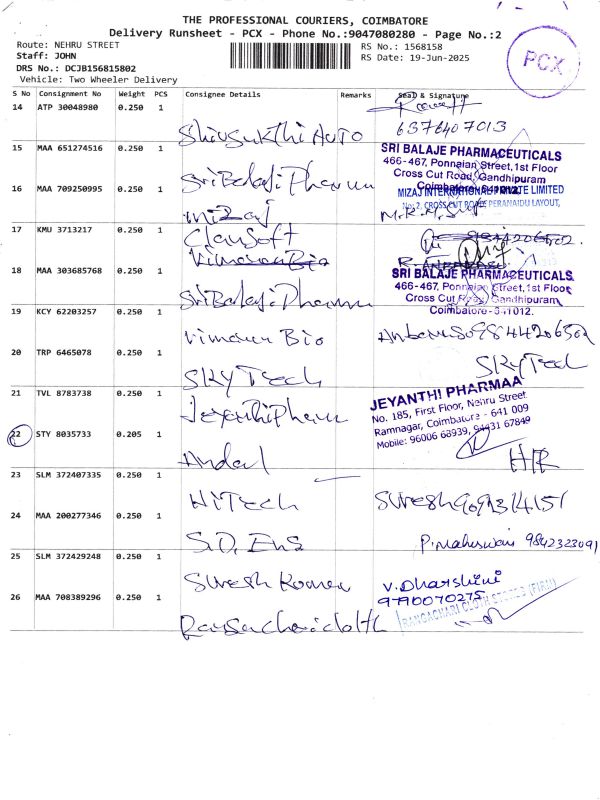 THE PROFESSIONAL COURIERS, COIMBATORE
Delivery Runsheet - PCX - Phone No.:9047080280 - Page No.:2
Route: NEHRU STREET
Staff: JOHN
DRS No.: DCJB156815802
Vehicle: Two Wheeler Delivery
RS No.: 1568158
RS Date: 19-Jun-2025
PCX
S No Consignment No Weight PCS Consignee Details Remarks Seal & Signature
14 ATP 30048980 0.250 1
Shivsukthi Auto 6374407013
15 MAA 651274516 0.250 1
Sri Balaji Pharma
SRI BALAJE PHARMACEUTICALS
466-467, Ponnaian Street, 1st Floor
Cross Cut Road, Gandhipuram
Coimbatore - 641012.
16 MAA 709250995 0.250 1
Mizaj
MIZAJ INTERNATIONAL PRIVATE LIMITED
No: 2, CROSS CUT ROAD PERAMAIDU LAYOUT,
17 KMU 3713217 0.250 1
Clansoft
Vimason Bio
18 MAA 303685768 0.250 1
Sri Balaji Pharma
SRI BALAJE PHARMACEUTICALS
466-467, Ponnaian Street, 1st Floor
Cross Cut Road, Gandhipuram,
Coimbatore - 641012.
19 KCY 62203257 0.250 1
Vimason Bio 9844206502
20 TRP 6465078 0.250 1
SKY Tech SKY Tech
21 TVL 8783738 0.250 1
Jeyanthi Pharm
JEYANTHI PHARMAA
No. 185, First Floor, Nehru Street
Ramnagar, Coimbatore - 641 009
Mobile: 96006 68939, 94431 67849
22 STY 8035733 0.205 1
Andal
23 SLM 372407335 0.250 1
HiTech Suresh 9092314151
24 MAA 200277346 0.250 1
S.D. Ens P. Maheswari 9842323091
25 SLM 372429248 0.250 1
Suresh Kumar V. Dharshini
9790070275
26 MAA 708389296 0.250 1
Rangachari cloth
RANGACHARI CLOTH STORES (FIRM)